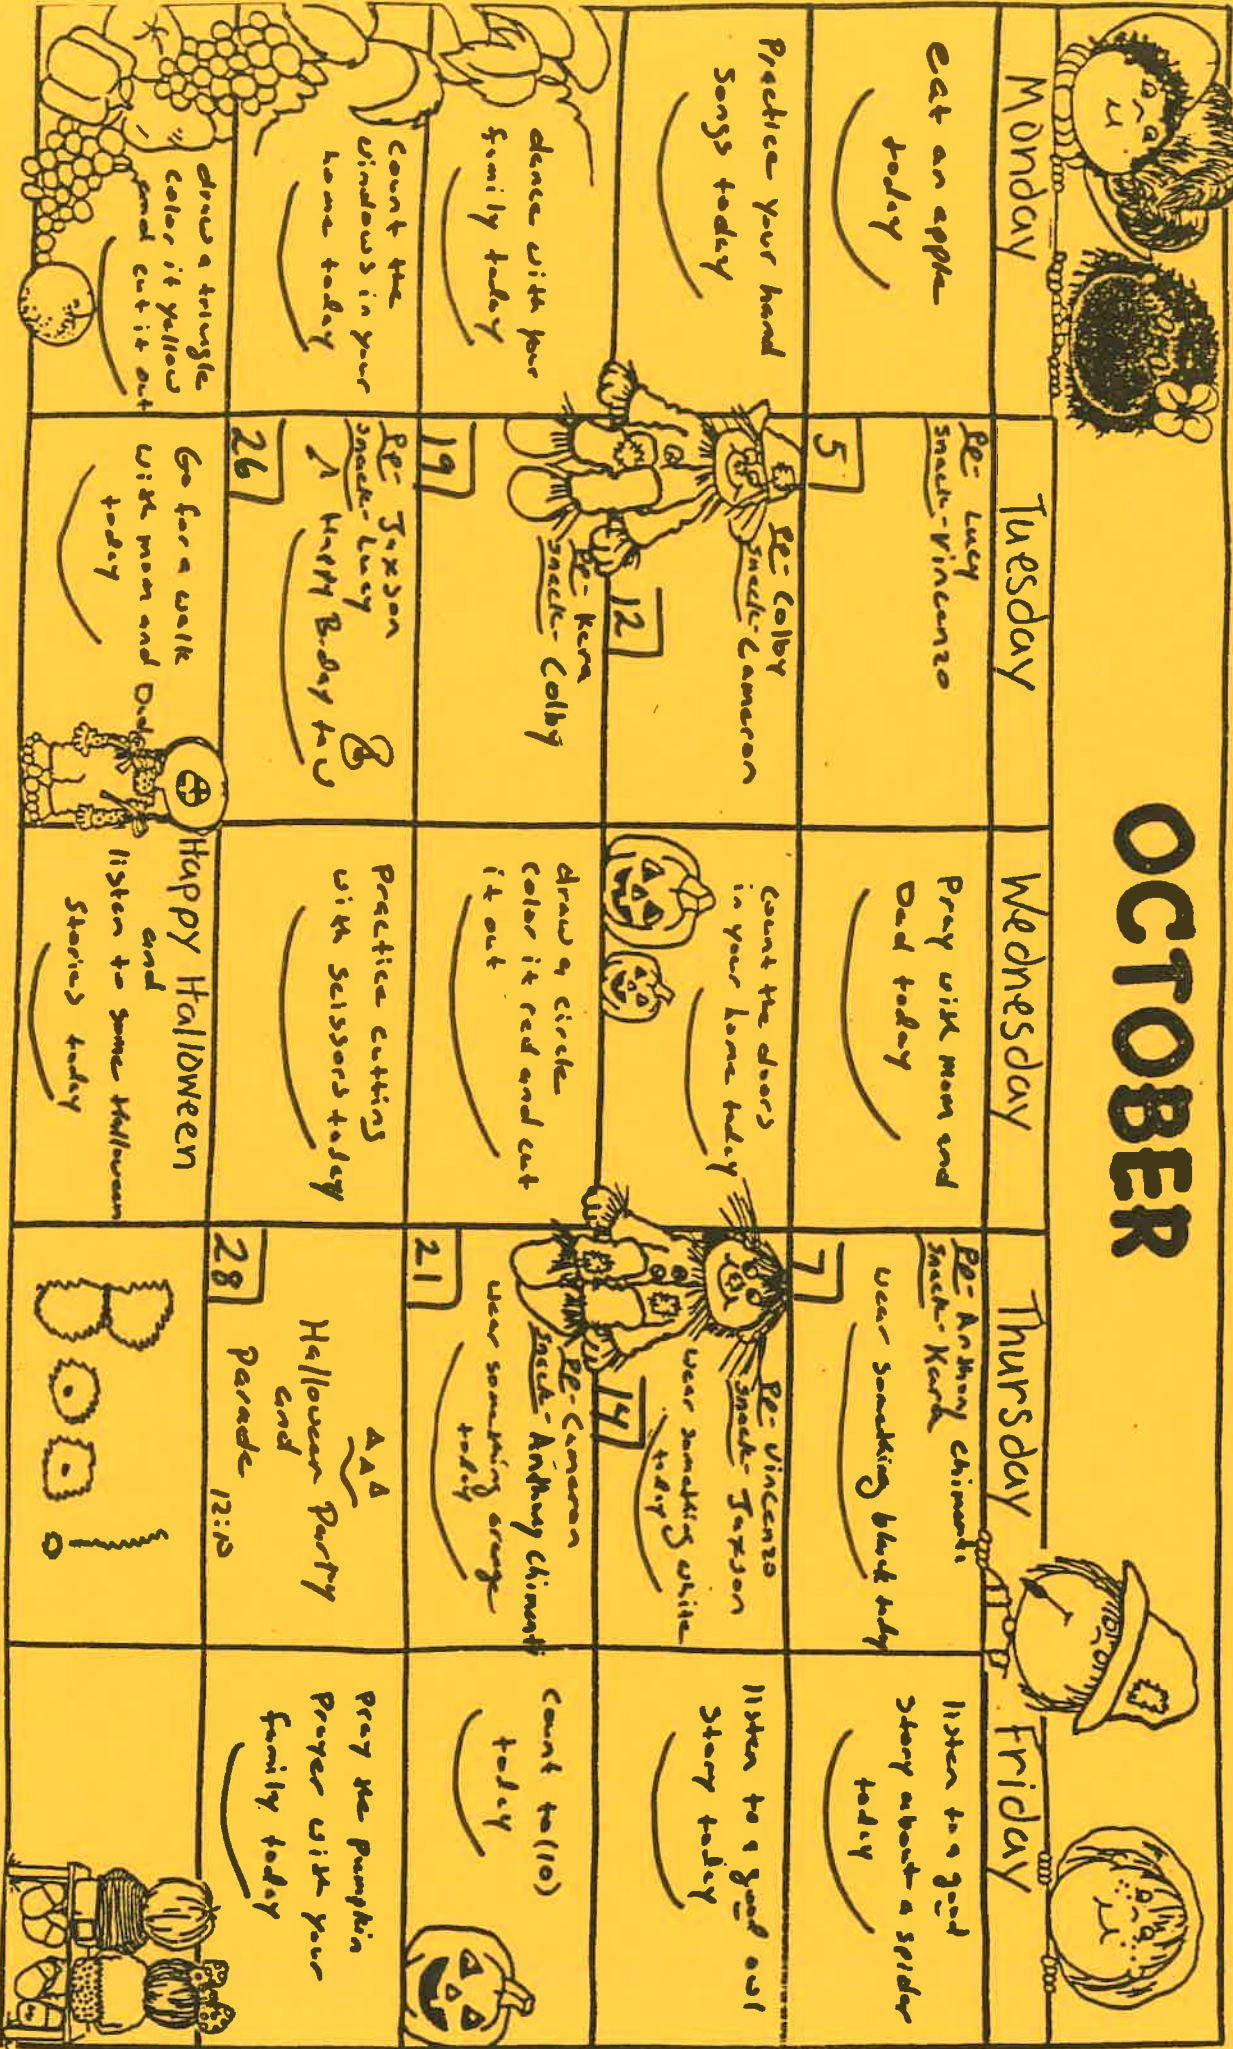 OCTOBER
Monday
Tuesday
Wednesday
Thursday
Friday
eat an apple
today
PP- Lucy
snack-Vincenzo
5
Pray with mom and
Dad today
PP- Anthony Chimenti
snack- Kara
wear something black today
7
listen to a good
story about a spider
today
Practice your hand
Songs today
PP- Colby
snack-Cameron
12
count the doors
in your home today
PP- Vincenzo
snack- Jaxson
wear something white
today
14
listen to a good owl
Story today
dance with your
family today
PP- Kara
snack- Colby
19
draw a circle
color it red and cut
it out
PP- Cameron
snack- Anthony Chimenti
wear something orange
today
21
count to (10)
today
count the
windows in your
home today
PP- Jaxson
snack- Lucy
Happy B-day to U
26
Practice cutting
with scissors today
Halloween Party
and
Parade
28
Pray the Pumpkin
Prayer with your
family today
draw a triangle
color it yellow
and cut it out
Go for a walk
with mom and Dad
today
Happy Halloween
and
listen to some Halloween
Stories today
Boo!